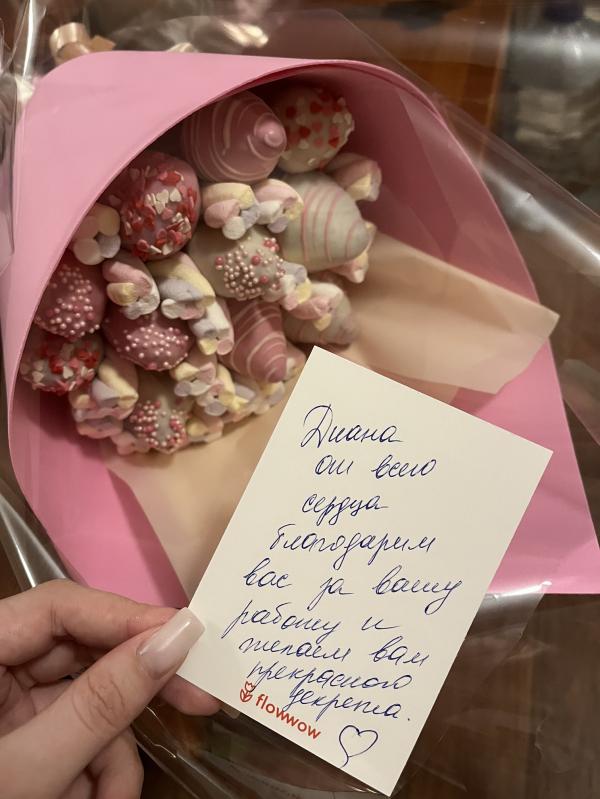 Диана
от всего
сердца
благодарим
вас за вашу
работу и
желаем вам
прекрасного
декрета.
flowwow